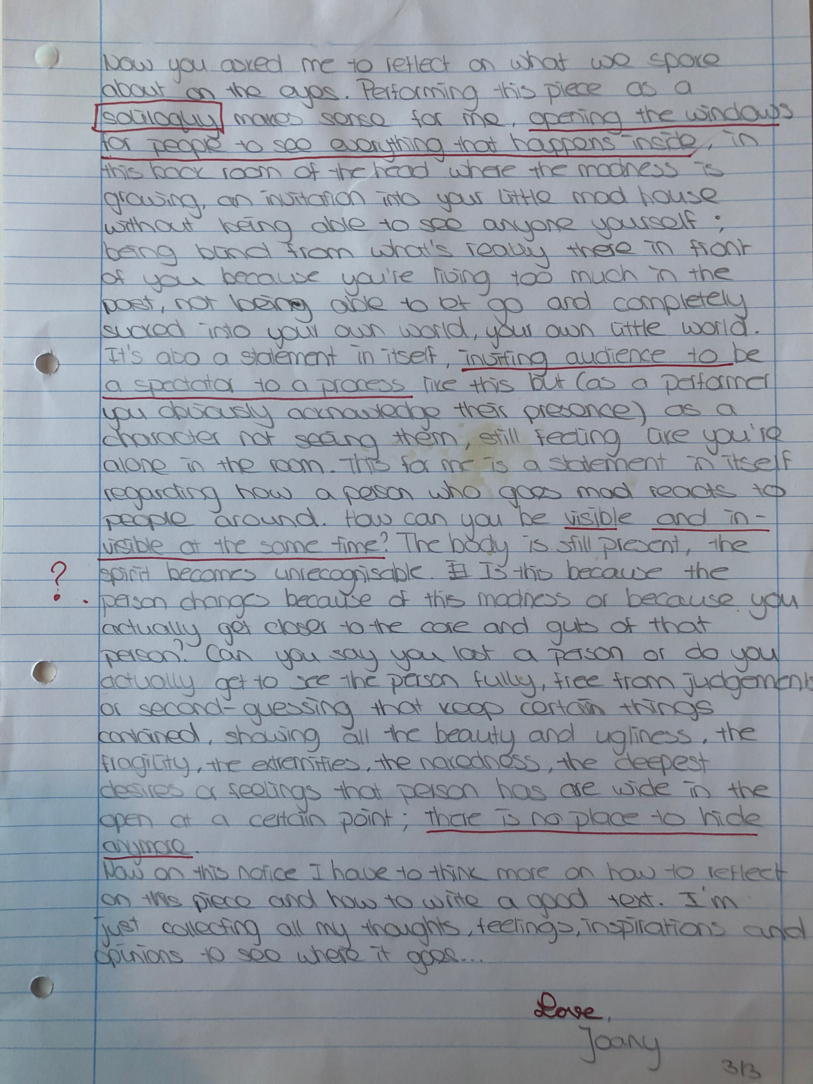 Now you asked me to reflect on what we spoke
about on the ayes. Performing this piece as a
soliloquy makes sense for me, opening the windows
for people to see everything that happens inside, in
this back room of the head where the madness is
growing, an invitation into your little mad house
without being able to see anyone yourself;
being band from what's really there in front
of you because you're living too much in the
past, not being able to let go and completely
sucked into your own world, your own little world.
It's also a statement in itself, inviting audience to be
a spectator to a process like this but (as a performer
you obviously acknowledge their presence) as a
character not seeing them, still feeling like you're
alone in the room. This for me is a statement in itself
regarding how a person who goes mad reacts to
people around. How can you be visible and in-
visible at the same time? The body is still present, the
? spirit becomes unrecognisable. Is this because the
person changes because of this madness or because you
actually get closer to the core and guts of that
person? Can you say you lost a person or do you
actually get to see the person fully, free from judgement
or second-guessing that keep certain things
contained, showing all the beauty and ugliness, the
fragility, the extremities, the nakedness, the deepest
desires or feelings that person has are wide in the
open at a certain point; there is no place to hide
anymore.
Now on this notice I have to think more on how to reflect
on this piece and how to write a good text. I'm
just collecting all my thoughts, feelings, inspirations and
opinions to see where it goes...
Love,
Joany
3/3